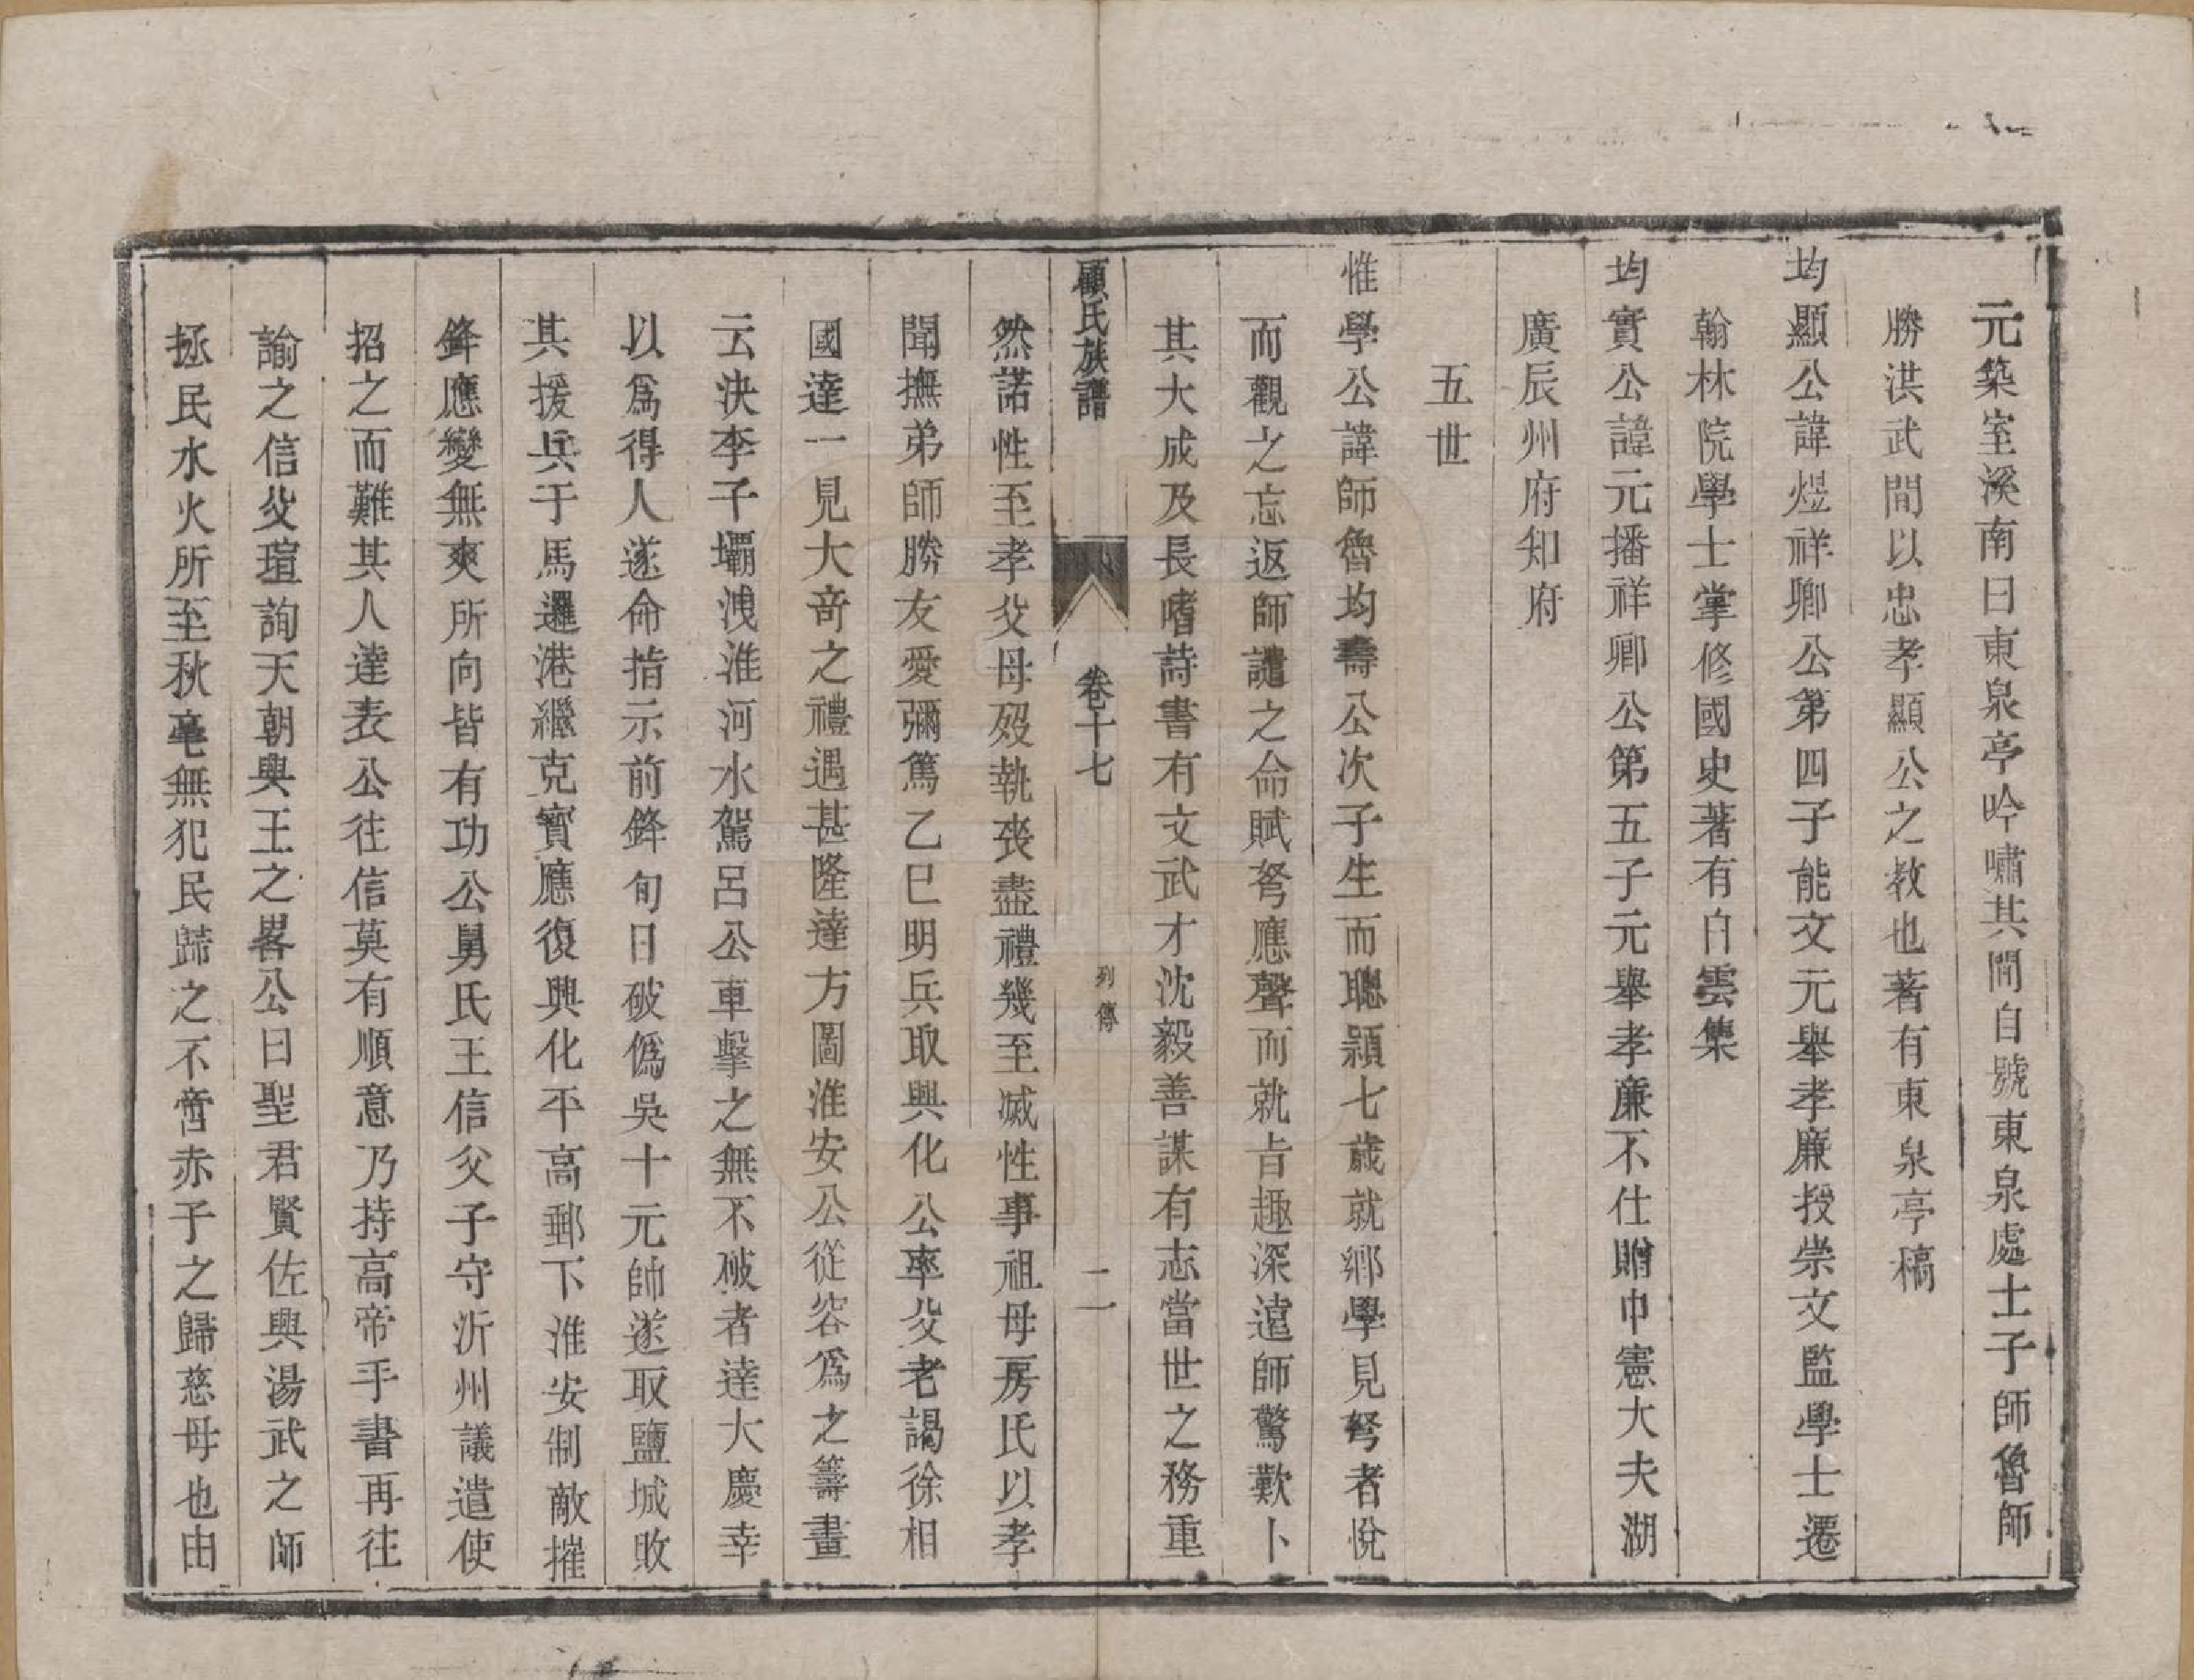 元築室溪南曰東泉亭吟嘯其間自號東泉處士子師魯師
勝洪武間以忠孝顯公之教也著有東泉亭稿
均顯公諱煜祥卿公第四子能文元舉孝廉授崇文監學士遷
翰林院學士掌修國史著有白雲集
均實公諱元播祥卿公第五子元舉孝廉不仕贈中憲大夫湖
廣辰州府知府
五世
惟學公諱師魯均壽公次子生而聰穎七歲就鄉學見弩者悅
而觀之忘返師譴之命賦弩應聲而就旨趣深遠師驚歎卜
其大成及長嗜詩書有文武才沈毅善謀有志當世之務重
然諾性至孝父母歿執喪盡禮幾至滅性事祖母房氏以孝
聞撫弟師勝友愛彌篤乙巳明兵取興化公率父老謁徐相
國達一見大奇之禮遇甚隆達方圖淮安公從容為之籌畫
云決李子壩洩淮河水駕呂公車擊之無不破者達大慶幸
以爲得人遂命指示前鋒旬日破偽吳十元帥遂取鹽城敗
其援兵于馬邏港繼克寶應復興化平高郵下淮安制敵摧
鋒應變無爽所向皆有功公舅氏王信父子守沂州議遣使
招之而難其人達表公往信莫有順意乃持高帝手書再往
諭之信父瑄詢天朝與王之畧公曰聖君賢佐與湯武之師
拯民水火所至秋毫無犯民歸之不啻赤子之歸慈母也由
顧氏族譜
卷十七
列傳
二